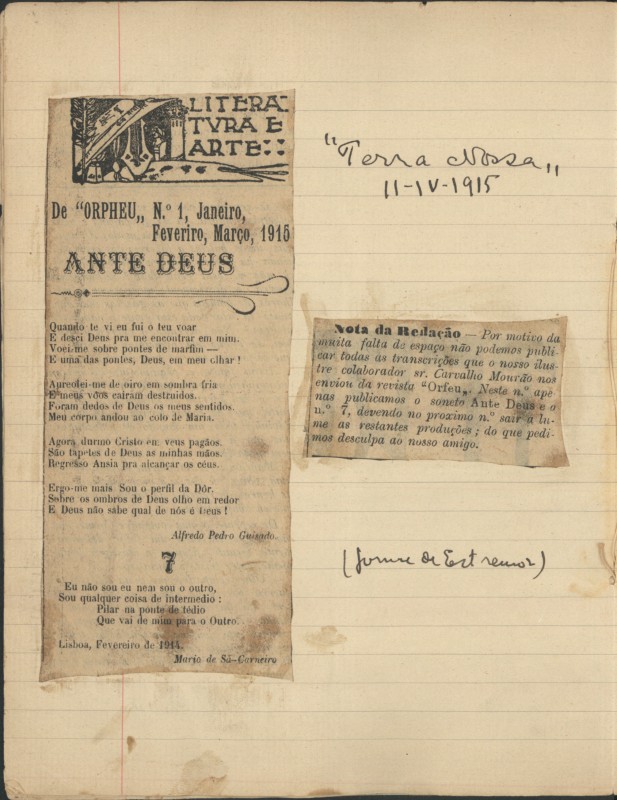 Nº 1
LITERA
TVRA E
ARTE::
De "ORPHEU„ N.º 1, Janeiro,
Feveriro, Março, 1915
ANTE DEUS
Quando te vi eu fui o teu voar
E desci Deus pra me encontrar em mim.
Voei-me sobre pontes de marfim —
E uma das pontes, Deus, em meu olhar !
Apreofei-me de oiro em sombra fria
E meus vôos cairam destruidos.
Foram dedos de Deus os meus sentidos.
Meu corpo andou ao colo de Maria.
Agora durmo Cristo em veus pagãos.
São tapetes de Deus as minhas mãos.
Regresso Ansia pra alcançar os céus.
Ergo-me mais Sou o perfil da Dôr.
Sobre os ombros de Deus olho em redor
E Deus não sabe qual de nós é Deus !
Alfredo Pedro Guisado.
7
Eu não sou eu nem sou o outro,
Sou qualquer coisa de intermedio :
Pilar na ponte de tédio
Que vai de mim para o Outro.
Lisboa, Fevereiro de 1914.
Mario de Sá-Carneiro
"Terra Nossa„
11-IV-1915
Nota da Redação — Por motivo da
muita falta de espaço não podemos publi-
car todas as transcrições que o nosso ilus-
tre colaborador sr. Carvalho Mourão nos
enviou da revista "Orfeu„. Neste n.º ape-
nas publicamos o soneto Ante Deus e o
n.º 7, devendo no proximo n.º sair a lu-
me as restantes produções ; do que pedi-
mos desculpa ao nosso amigo.
(Jornal de Estremoz)